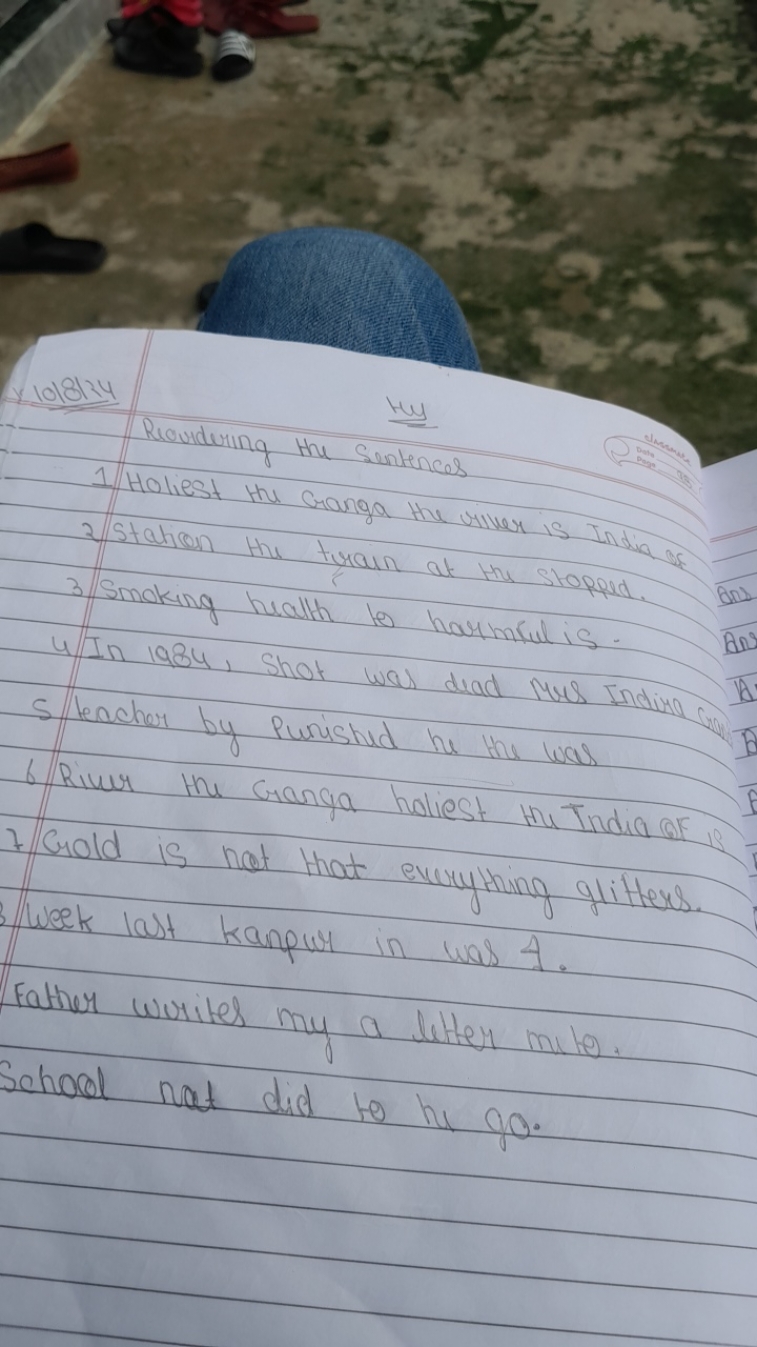 10/8/24
Hy
classmate
Date
Page
Reordering the Sentences
1 Holiest the Ganga the river is India of
2 Station the train at the stopped.
3 Smoking health to harmful is.
4 In 1984, Shot was dead Mrs Indira
5 teacher by Punished he the was
6 River the Ganga holiest the India of is
7 Gold is not that everything glitters.
8 Week last Kanpur in was I.
Father writes my a letter me to.
School not did to he go.
Ans
Ans